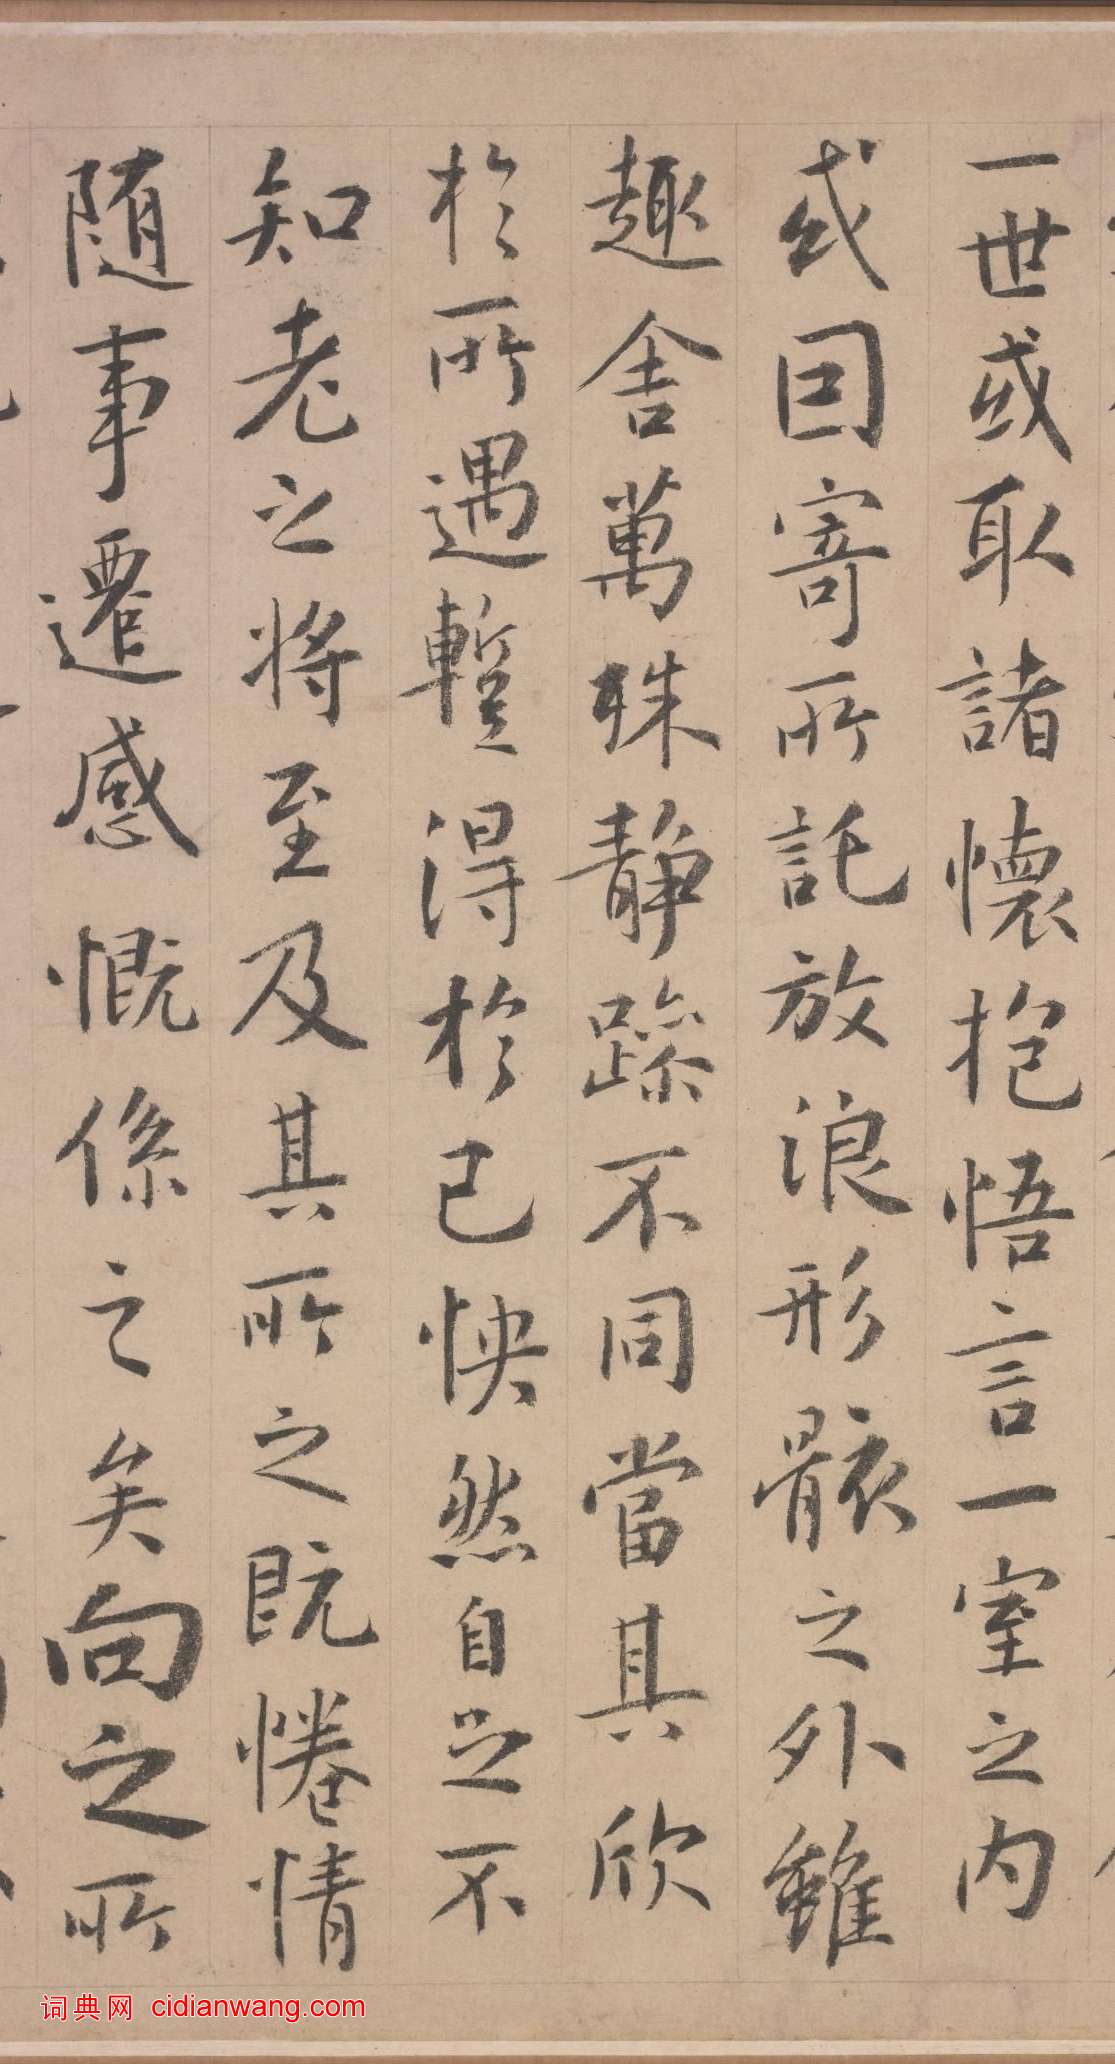 一世或取諸懷抱悟言一室之内
或因寄所託放浪形骸之外雖
趣舍萬殊静躁不同當其欣
於所遇蹔得於己怏然自之不
知老之將至及其所之既惓情
随事遷感慨係之矣向之所
词典网 cidianwang.com